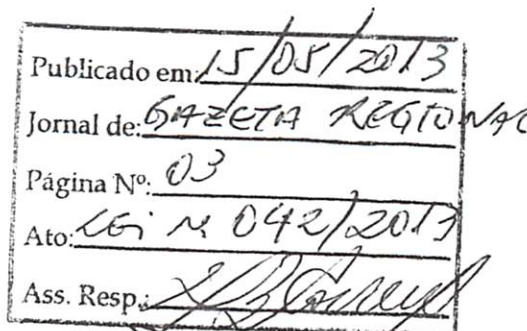 Publicado em: 15/05/2013
Jornal de: GAZETA REGIONAL
Página Nº: 03
Ato: LEi Nº 042/2013
Ass. Resp.: